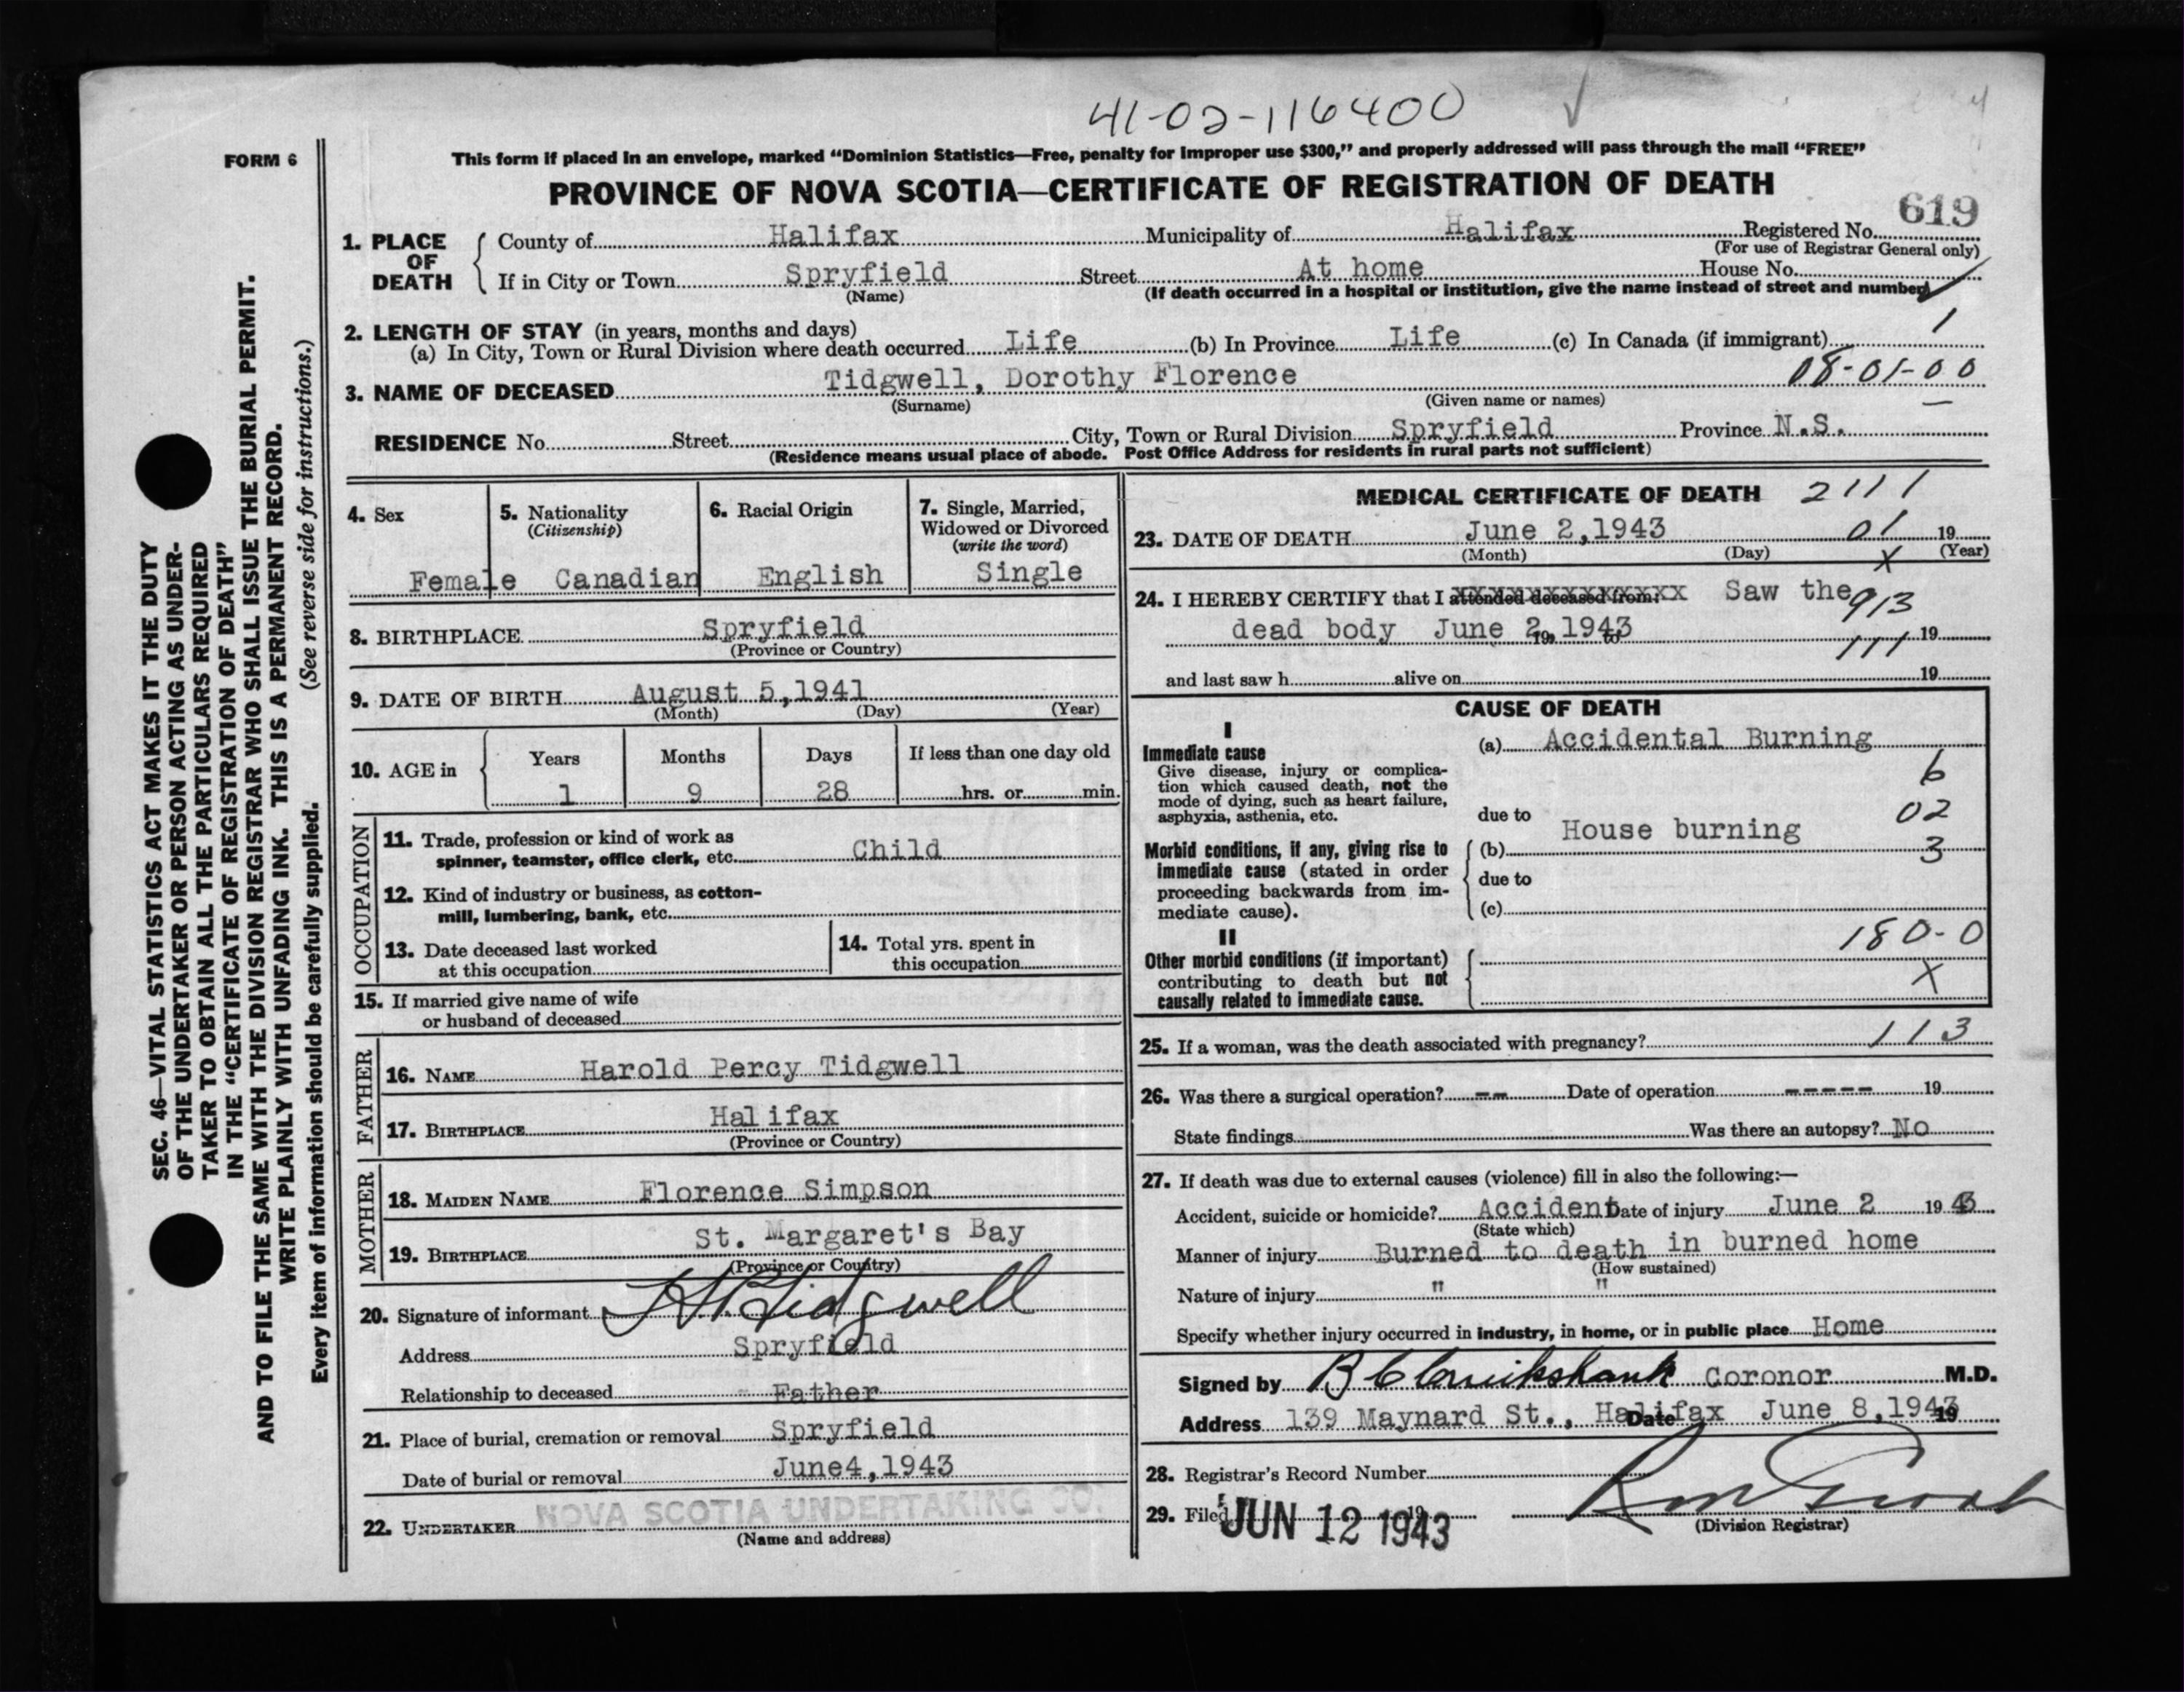 41-02-116400
FORM 6
This form if placed in an envelope, marked “Dominion Statistics—Free, penalty for improper use $300,” and properly addressed will pass through the mail “FREE”
PROVINCE OF NOVA SCOTIA—CERTIFICATE OF REGISTRATION OF DEATH
619
1. PLACE OF DEATH
County of Halifax Municipality of Halifax Registered No.
(For use of Registrar General only)
If in City or Town Spryfield Street At home House No.
(Name) (If death occurred in a hospital or institution, give the name instead of street and number)
2. LENGTH OF STAY (in years, months and days) 1
(a) In City, Town or Rural Division where death occurred Life (b) In Province Life (c) In Canada (if immigrant)
08-01-00
3. NAME OF DECEASED Tidgwell, Dorothy Florence
(Surname) (Given name or names)
RESIDENCE No. Street City, Town or Rural Division Spryfield Province N.S.
(Residence means usual place of abode. Post Office Address for residents in rural parts not sufficient)
4. Sex
Female
5. Nationality
(Citizenship)
Canadian
6. Racial Origin
English
7. Single, Married,
Widowed or Divorced
(write the word)
Single
8. BIRTHPLACE Spryfield
(Province or Country)
9. DATE OF BIRTH August 5,1941
(Month) (Day) (Year)
10. AGE in
Years Months Days If less than one day old
1 9 28 hrs. or min.
OCCUPATION
11. Trade, profession or kind of work as
spinner, teamster, office clerk, etc. Child
12. Kind of industry or business, as cotton-
mill, lumbering, bank, etc.
13. Date deceased last worked
at this occupation
14. Total yrs. spent in
this occupation
15. If married give name of wife
or husband of deceased
FATHER
16. NAME Harold Percy Tidgwell
17. BIRTHPLACE Halifax
(Province or Country)
MOTHER
18. MAIDEN NAME Florence Simpson
19. BIRTHPLACE St. Margaret's Bay
(Province or Country)
20. Signature of informant H.P. Tidgwell
Address Spryfield
Relationship to deceased Father
21. Place of burial, cremation or removal Spryfield
Date of burial or removal June4,1943
22. UNDERTAKER NOVA SCOTIA UNDERTAKING CO.
(Name and address)
MEDICAL CERTIFICATE OF DEATH 2111
23. DATE OF DEATH June 2,1943 01 19
(Month) (Day) (Year)
X
24. I HEREBY CERTIFY that I attended deceased from: Saw the 913
dead body June 2, 1943 19 to 19
111
and last saw h alive on 19
CAUSE OF DEATH
I
Immediate cause
Give disease, injury or complica-
tion which caused death, not the
mode of dying, such as heart failure,
asphyxia, asthenia, etc.
(a) Accidental Burning
6
due to 02
Morbid conditions, if any, giving rise to
immediate cause (stated in order
proceeding backwards from im-
mediate cause).
(b) House burning 3
due to
(c)
180-0
II
Other morbid conditions (if important)
contributing to death but not
causally related to immediate cause.
X
25. If a woman, was the death associated with pregnancy? 113
26. Was there a surgical operation? -- Date of operation ----- 19
State findings Was there an autopsy? No
27. If death was due to external causes (violence) fill in also the following:—
Accident, suicide or homicide? Accident Date of injury June 2 19 43
(State which)
Manner of injury Burned to death in burned home
(How sustained)
Nature of injury " "
Specify whether injury occurred in industry, in home, or in public place Home
Signed by Coronor M.D.
Address 139 Maynard St., Halifax Date June 8,1943 19
28. Registrar's Record Number
29. Filed JUN 12 1943 19
(Division Registrar)
SEC. 46—VITAL STATISTICS ACT MAKES IT THE DUTY
OF THE UNDERTAKER OR PERSON ACTING AS UNDER-
TAKER TO OBTAIN ALL THE PARTICULARS REQUIRED
IN THE “CERTIFICATE OF REGISTRATION OF DEATH”
AND TO FILE THE SAME WITH THE DIVISION REGISTRAR WHO SHALL ISSUE THE BURIAL PERMIT.
WRITE PLAINLY WITH UNFADING INK. THIS IS A PERMANENT RECORD.
Every item of information should be carefully supplied. (See reverse side for instructions.)